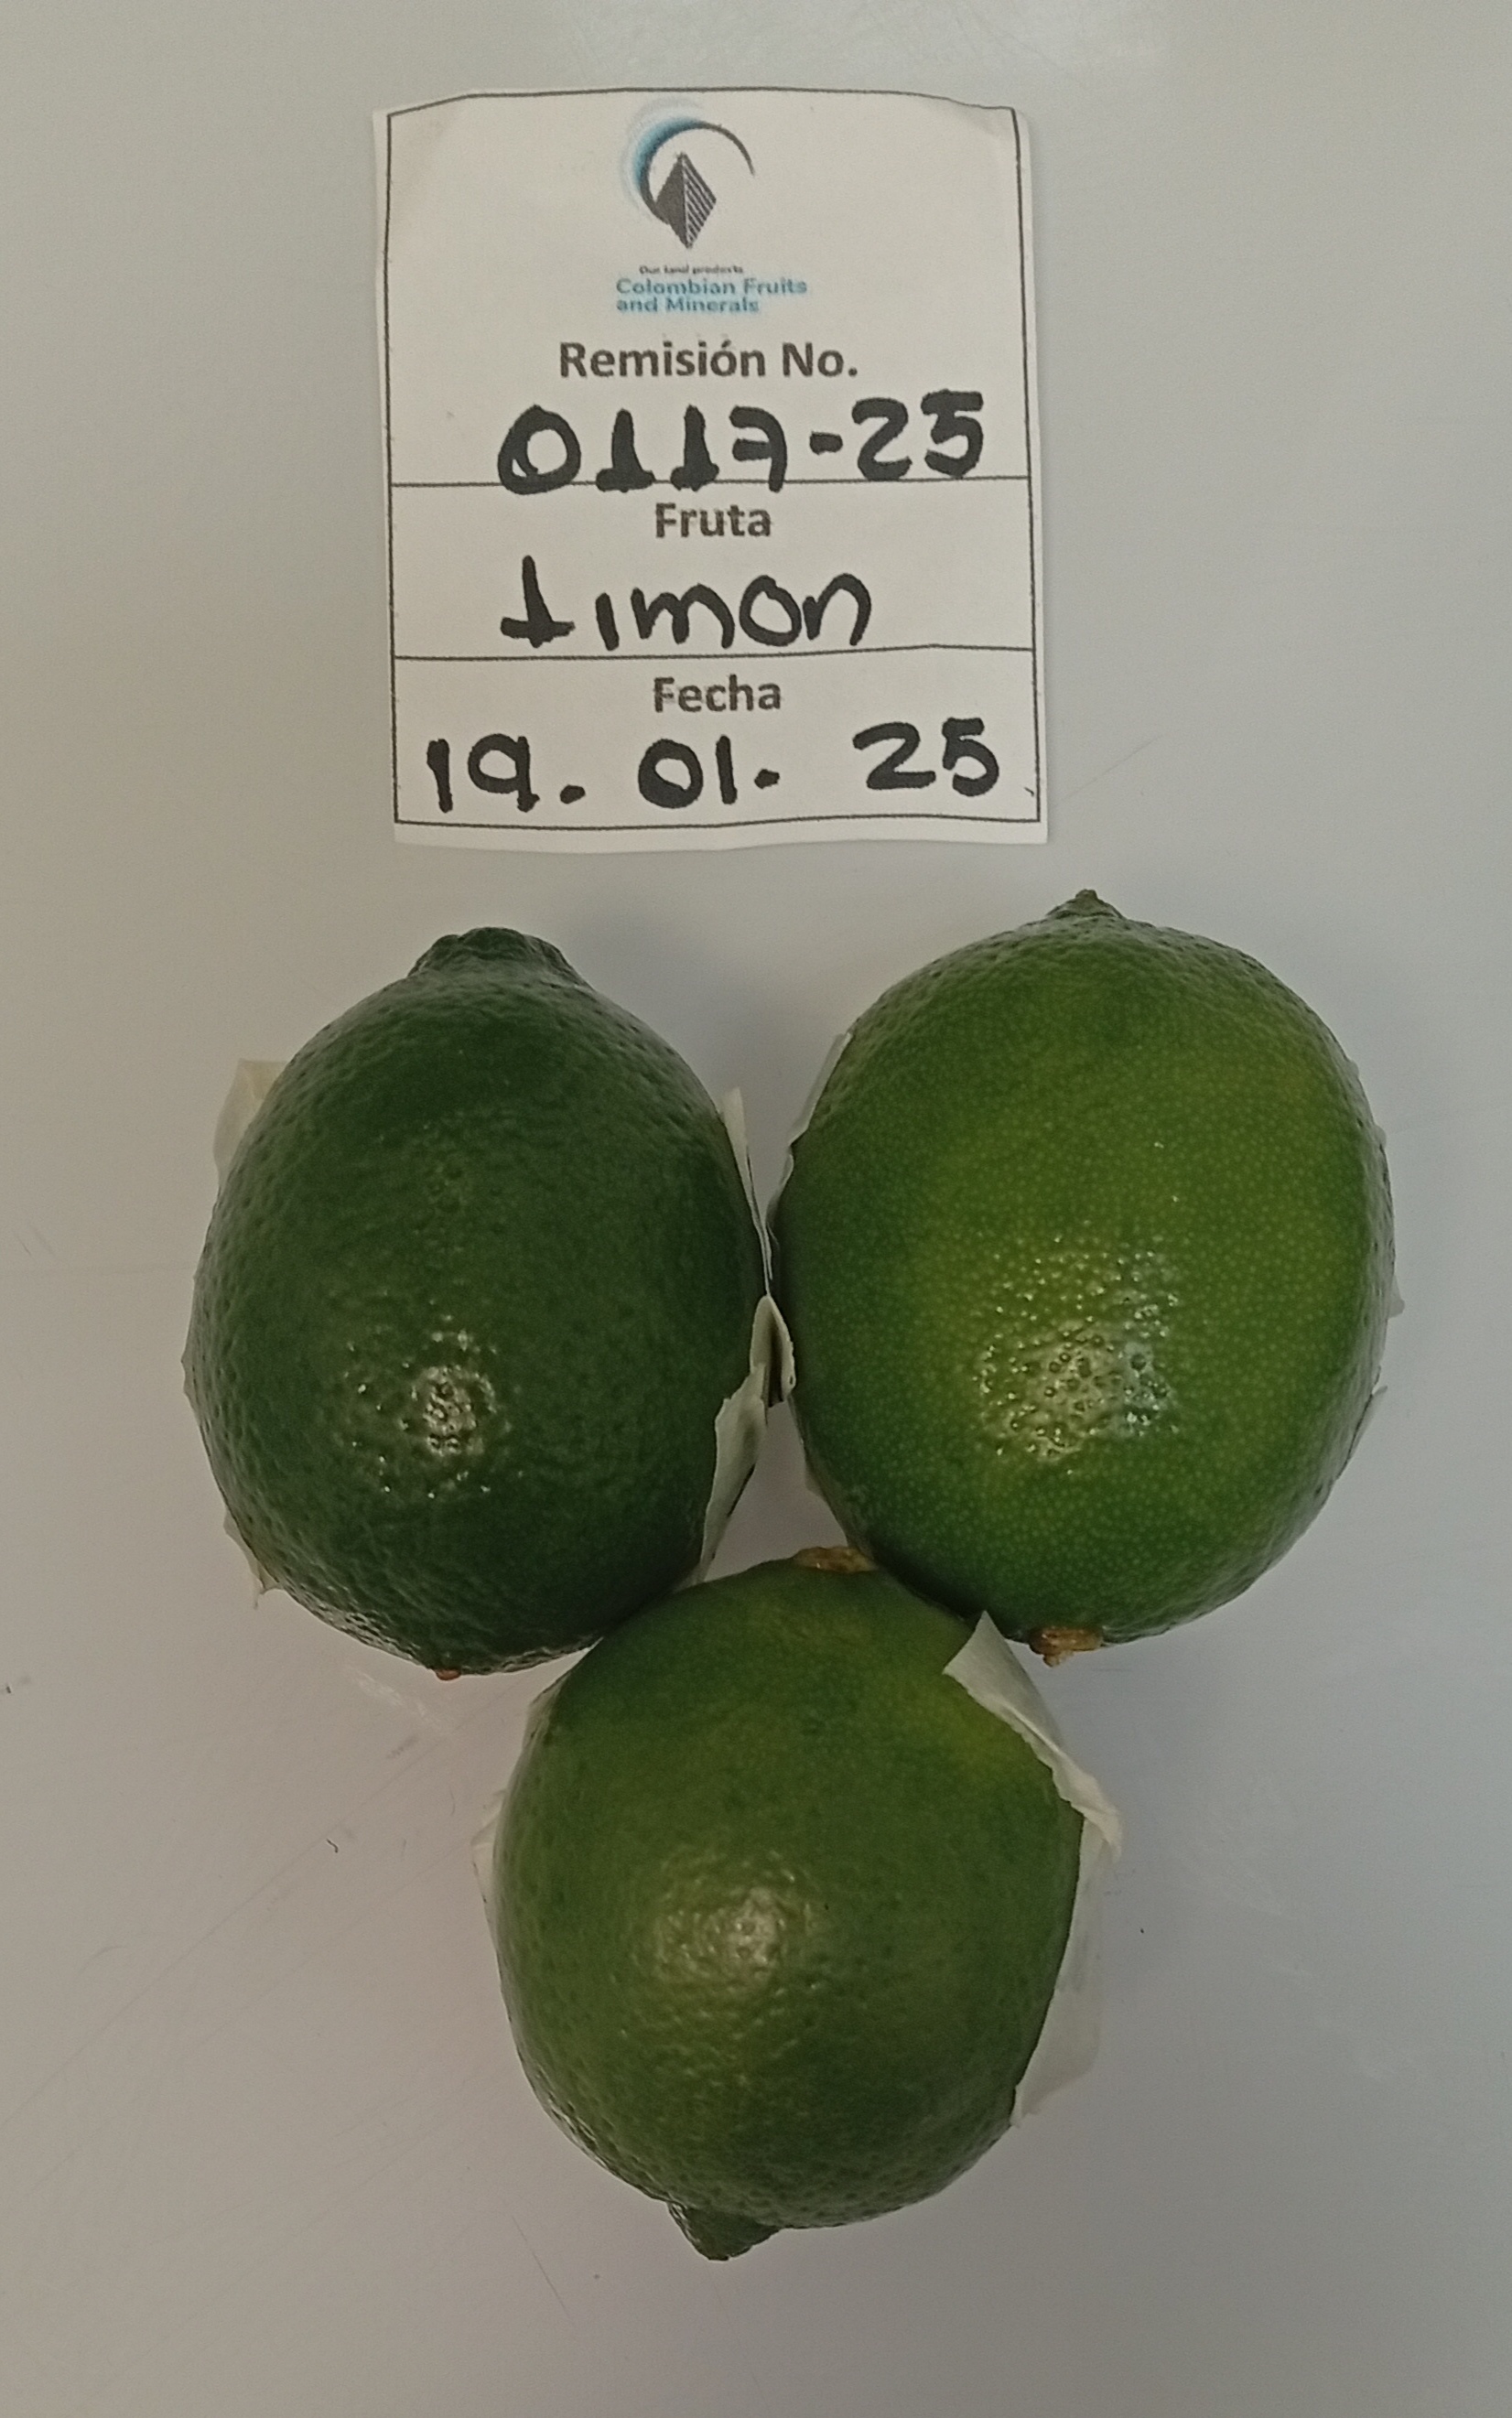 Our land products
Colombian Fruits
and Minerals
Remisión No.
0117-25
Fruta
Limon
Fecha
19. 01. 25